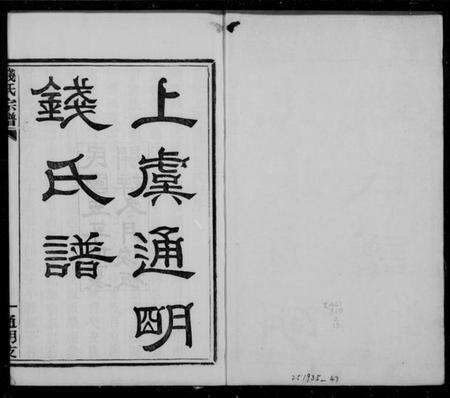 上虞通明
錢氏譜
錢氏宗譜
25 1935-47